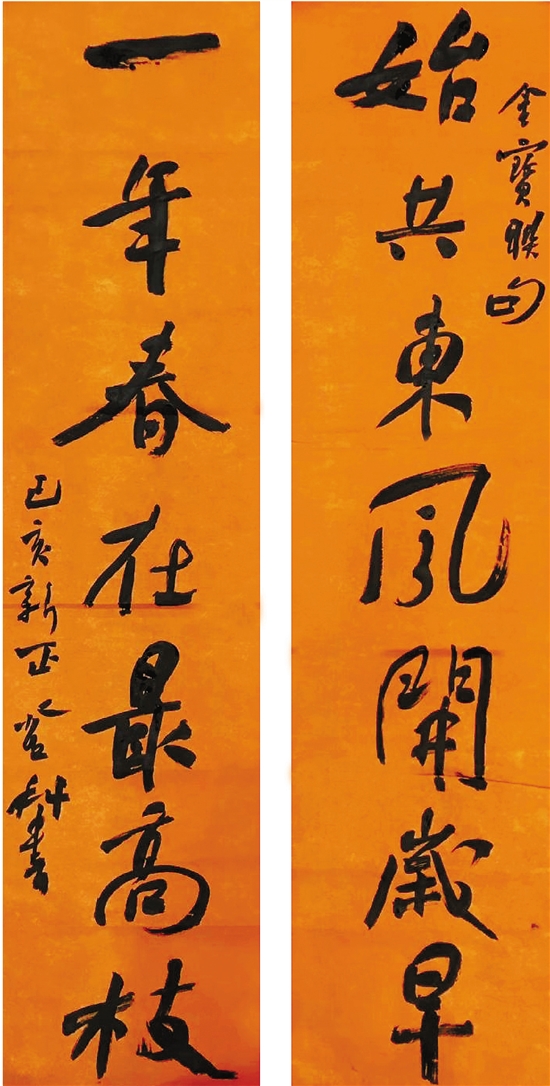 金寶聯句
始共東風開歲早
一年春在最高枝
己亥新正 科書